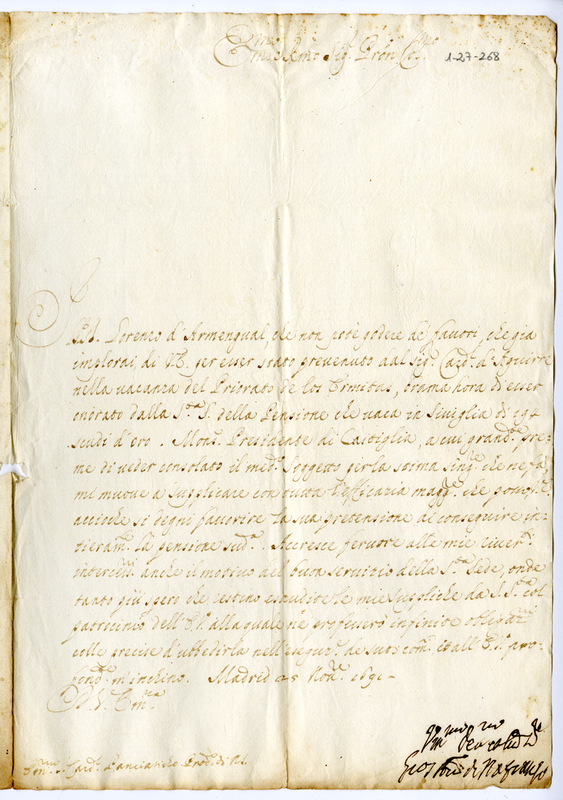 Em.mo e Rmo Sig.r Pron Col.mo
1-27-268
D. Lorenzo d'Armengual, che non potè godere de favori, che già
implorai, di V.E. per esser stato prevenuto dal Sig. Card. d'Aguirre
nella vacanza del Priorato de los Ermitas, brama hora di esser
onorato dalla S.tà S. della Pensione che vaca in Siviglia di 194
scudi d'oro. Mons. Presidente di Castiglia, a cui grand. pre-
me di veder consolato il med. soggetto per la stima sing. che ne fà
mi muove a supplicare con tutta l'efficazia magg. che
acciochè si degni favorire la sua pretensione di conseguire in-
tieram. la pensione sud. Accresce fervore alle mie river.
interciss. anche il motivo del buon servizio della S.ta Sede, onde
tanto più spero che restino esaudite le mie suppliche da S. S.tà col
patrocinio dell' alla quale ne professerò infinite obligaz.
colle precise d'ubbedirla nell' de suoi com. et all' E.V. pro-
fond. m'inchino. Madrid 8 Nov.e 1691
D. V. Em.za
Um.mo Dev.mo
di
Sig. Card. Panciatichi